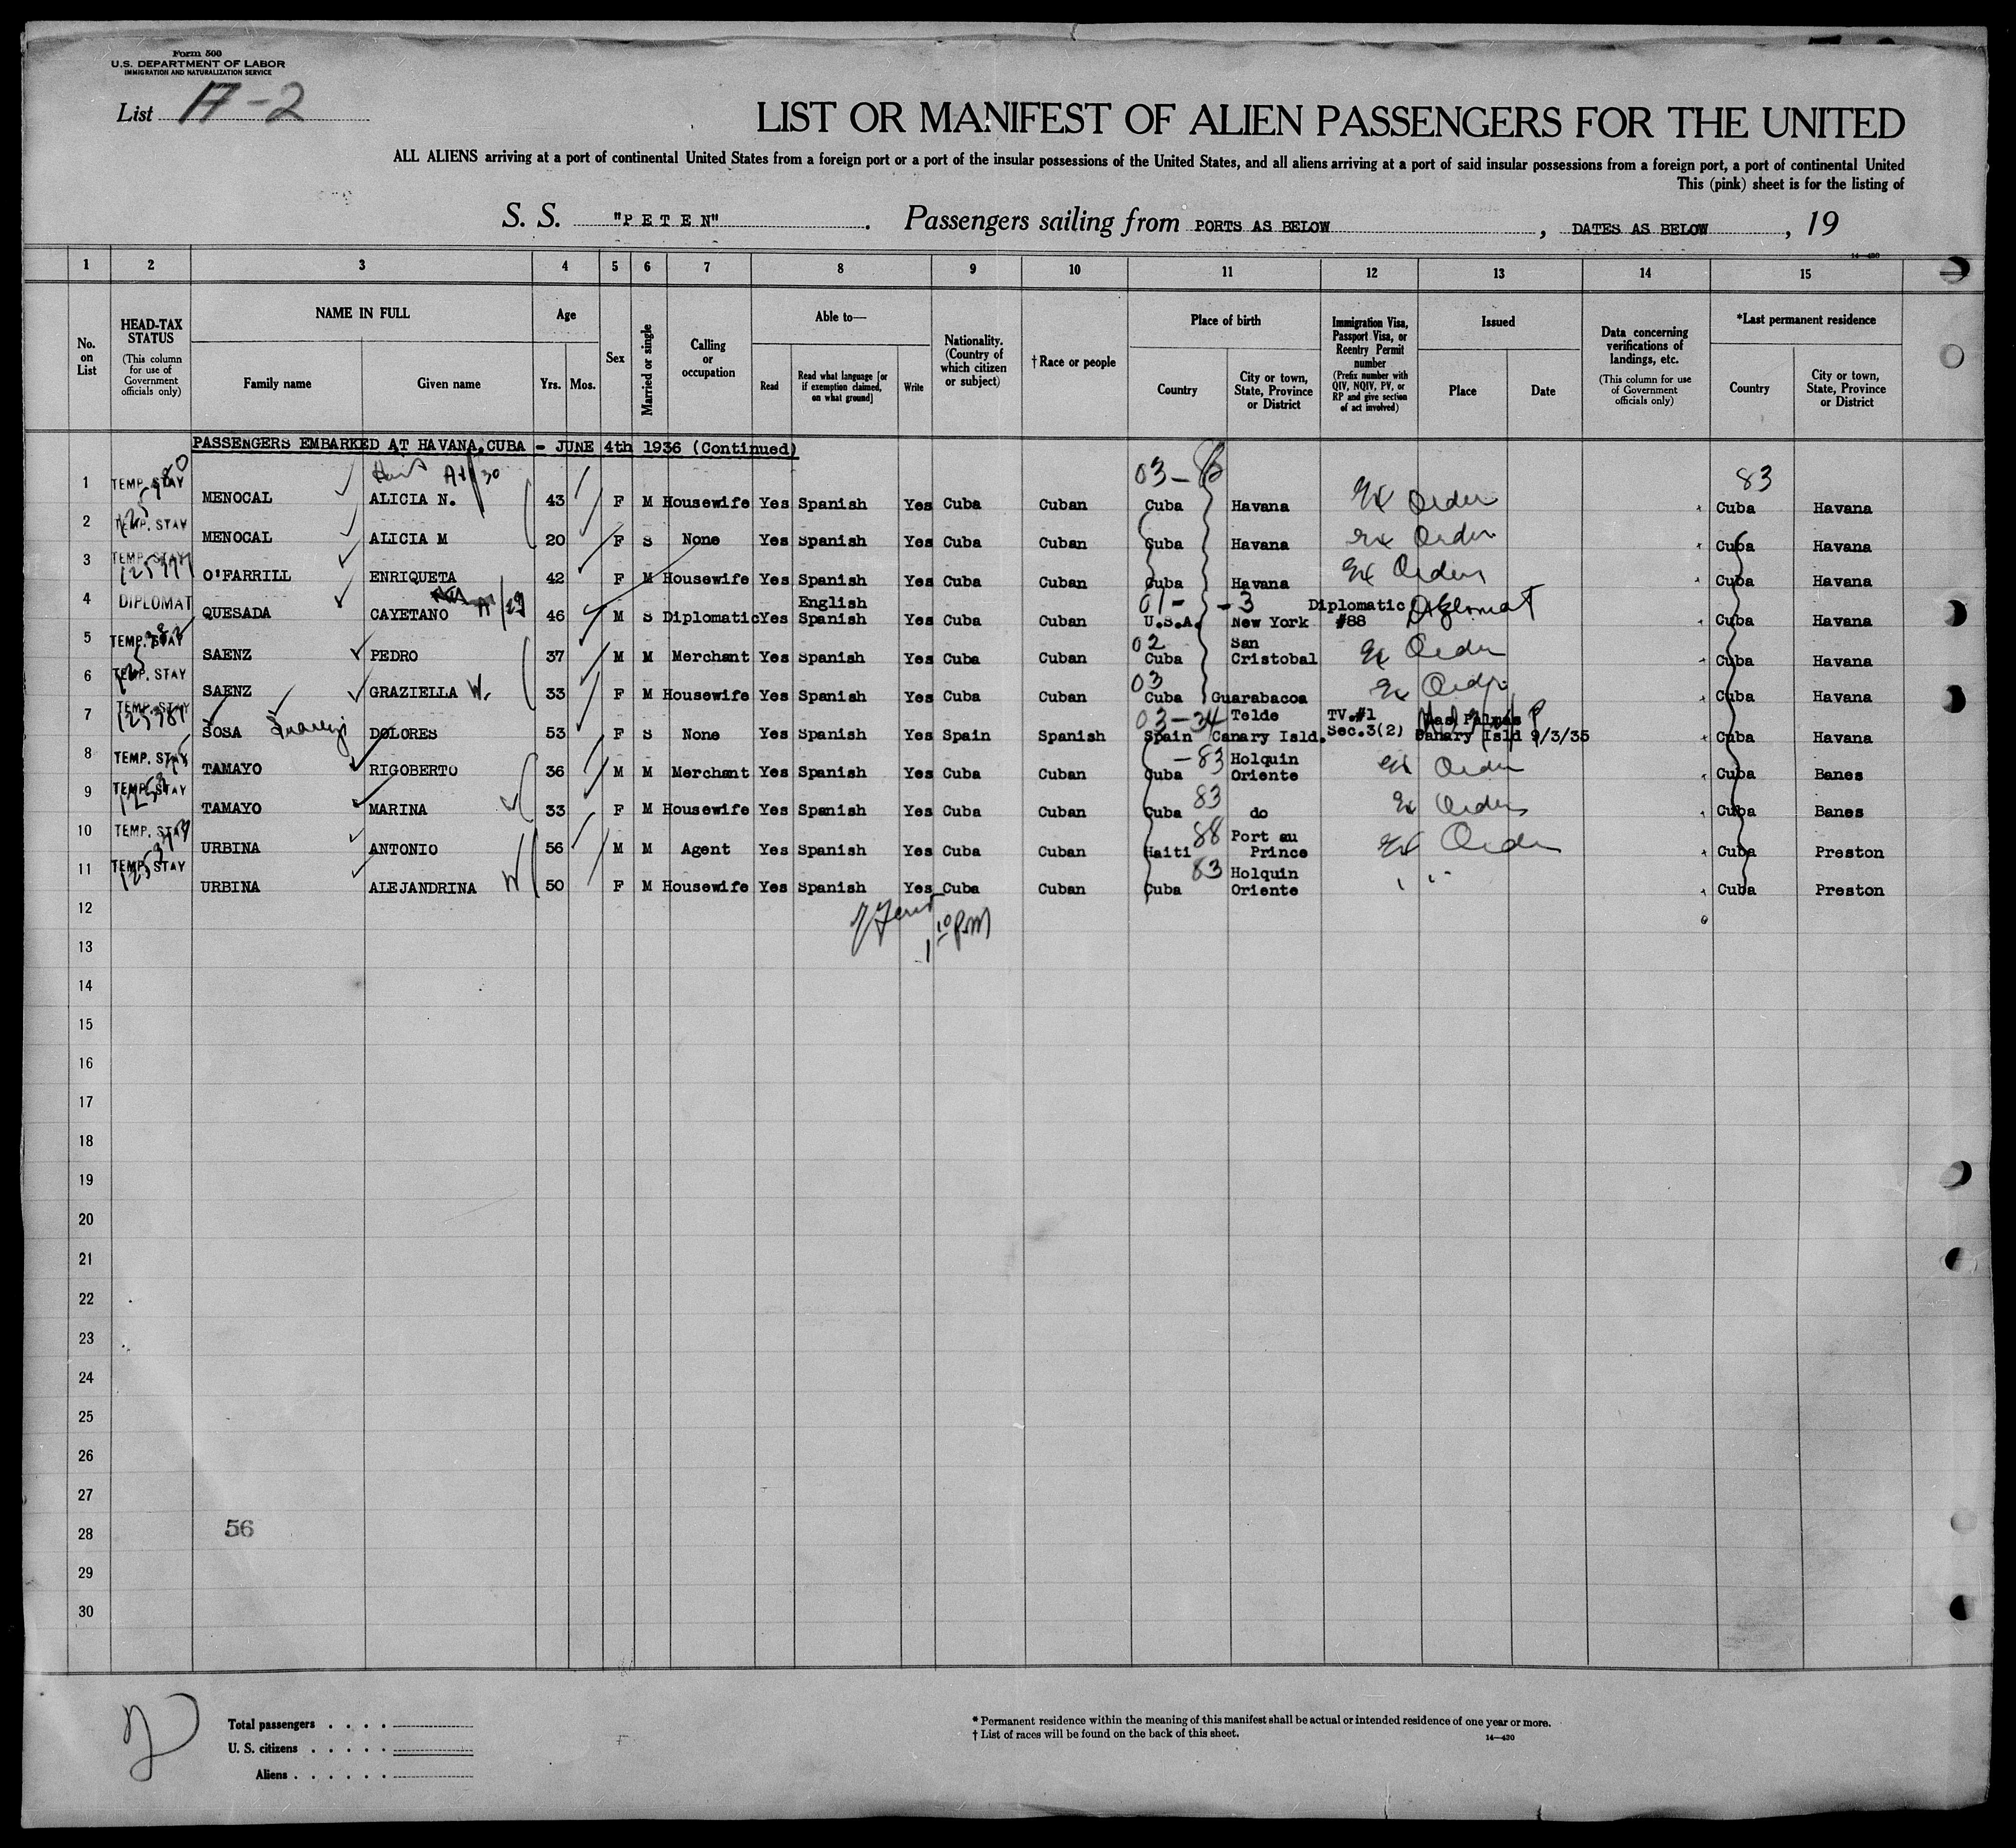 Form 500
U.S. DEPARTMENT OF LABOR
IMMIGRATION AND NATURALIZATION SERVICE
List A-2
LIST OR MANIFEST OF ALIEN PASSENGERS FOR THE UNITED
ALL ALIENS arriving at a port of continental United States from a foreign port or a port of the insular possessions of the United States, and all aliens arriving at a port of said insular possessions from a foreign port, a port of continental United
This (pink) sheet is for the listing of
S. S. "PETEN". Passengers sailing from PORTS AS BELOW, DATES AS BELOW, 19
14—430
1 2 3 4 5 6 7 8 9 10 11 12 13 14 15
No. on List
HEAD-TAX STATUS (This column for use of Government officials only)
NAME IN FULL
Family name Given name
Age
Yrs. Mos.
Sex
Married or single
Calling or occupation
Able to—
Read Read what language [or if exemption claimed, on what ground] Write
Nationality. (Country of which citizen or subject)
† Race or people
Place of birth
Country City or town, State, Province or District
Immigration Visa, Passport Visa, or Reentry Permit number (Prefix number with QIV, NQIV, PV, or RP and give section of act involved)
Issued
Place Date
Data concerning verifications of landings, etc. (This column for use of Government officials only)
*Last permanent residence
Country City or town, State, Province or District
PASSENGERS EMBARKED AT HAVANA, CUBA - JUNE 4th 1936 (Continued)
03- 83
1 TEMP. STAY MENOCAL ALICIA N. 43 F M Housewife Yes Spanish Yes Cuba Cuban Cuba Havana Ex Order Cuba Havana
2 TEMP. STAY MENOCAL ALICIA M 20 F S None Yes Spanish Yes Cuba Cuban Cuba Havana Ex Order Cuba Havana
3 TEMP. STAY O'FARRILL ENRIQUETA 42 F M Housewife Yes Spanish Yes Cuba Cuban Cuba Havana Ex Order Cuba Havana
4 DIPLOMAT QUESADA CAYETANO 46 M S Diplomatic Yes English Spanish Yes Cuba Cuban 01- U.S.A. -3 New York Diplomatic #88 Diplomat Cuba Havana
5 TEMP. STAY SAENZ PEDRO 37 M M Merchant Yes Spanish Yes Cuba Cuban 02 Cuba San Cristobal Ex Order Cuba Havana
6 TEMP. STAY SAENZ GRAZIELLA W. 33 F M Housewife Yes Spanish Yes Cuba Cuban 03 Cuba Guarabacoa Ex Order Cuba Havana
7 TEMP. STAY 125381 SOSA DOLORES 53 F S None Yes Spanish Yes Spain Spanish 03-34 Spain Telde Canary Isld. TV.#1 Sec.3(2) Las Palmas Canary Isld 9/3/35 Cuba Havana
8 TEMP. STAY TAMAYO RIGOBERTO 36 M M Merchant Yes Spanish Yes Cuba Cuban Cuba -83 Holquin Oriente Ex Order Cuba Banes
9 TEMP. STAY TAMAYO MARINA 33 F M Housewife Yes Spanish Yes Cuba Cuban Cuba 83 do Ex Order Cuba Banes
10 TEMP. STAY URBINA ANTONIO 56 M M Agent Yes Spanish Yes Cuba Cuban Haiti 88 Port au Prince Ex Order Cuba Preston
11 TEMP. STAY URBINA ALEJANDRINA W 50 F M Housewife Yes Spanish Yes Cuba Cuban Cuba 83 Holquin Oriente " " Cuba Preston
12
1 10 PM
13
14
15
16
17
18
19
20
21
22
23
24
25
26
27
28 56
29
30
Total passengers . . . .
U. S. citizens . . . . .
Aliens . . . . . .
* Permanent residence within the meaning of this manifest shall be actual or intended residence of one year or more.
† List of races will be found on the back of this sheet.
14—430